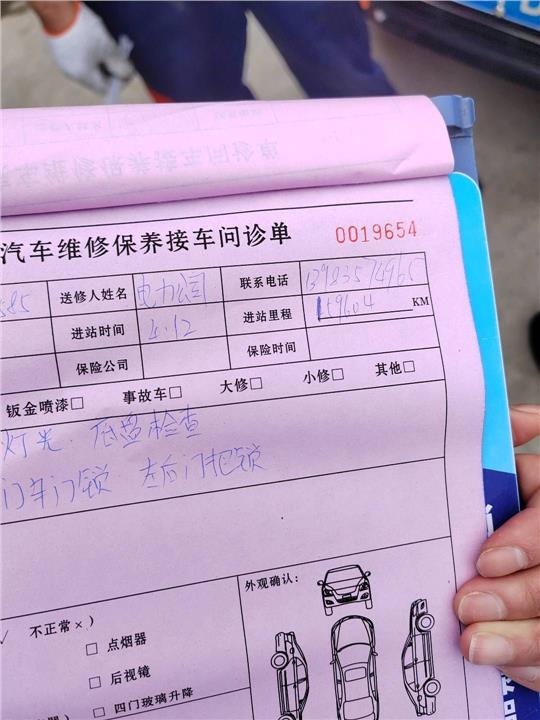 汽车维修保养接车问诊单 0019654
585 送修人姓名 电力公司 联系电话 13983574965
进站时间 4.12 进站里程 159604 KM
保险公司 保险时间
钣金喷漆□ 事故车□ 大修□ 小修□ 其他□
灯光 底盘检查
门车门锁 左后门把锁
外观确认:
√ 不正常×)
□ 点烟器
□ 后视镜
□ 四门玻璃升降